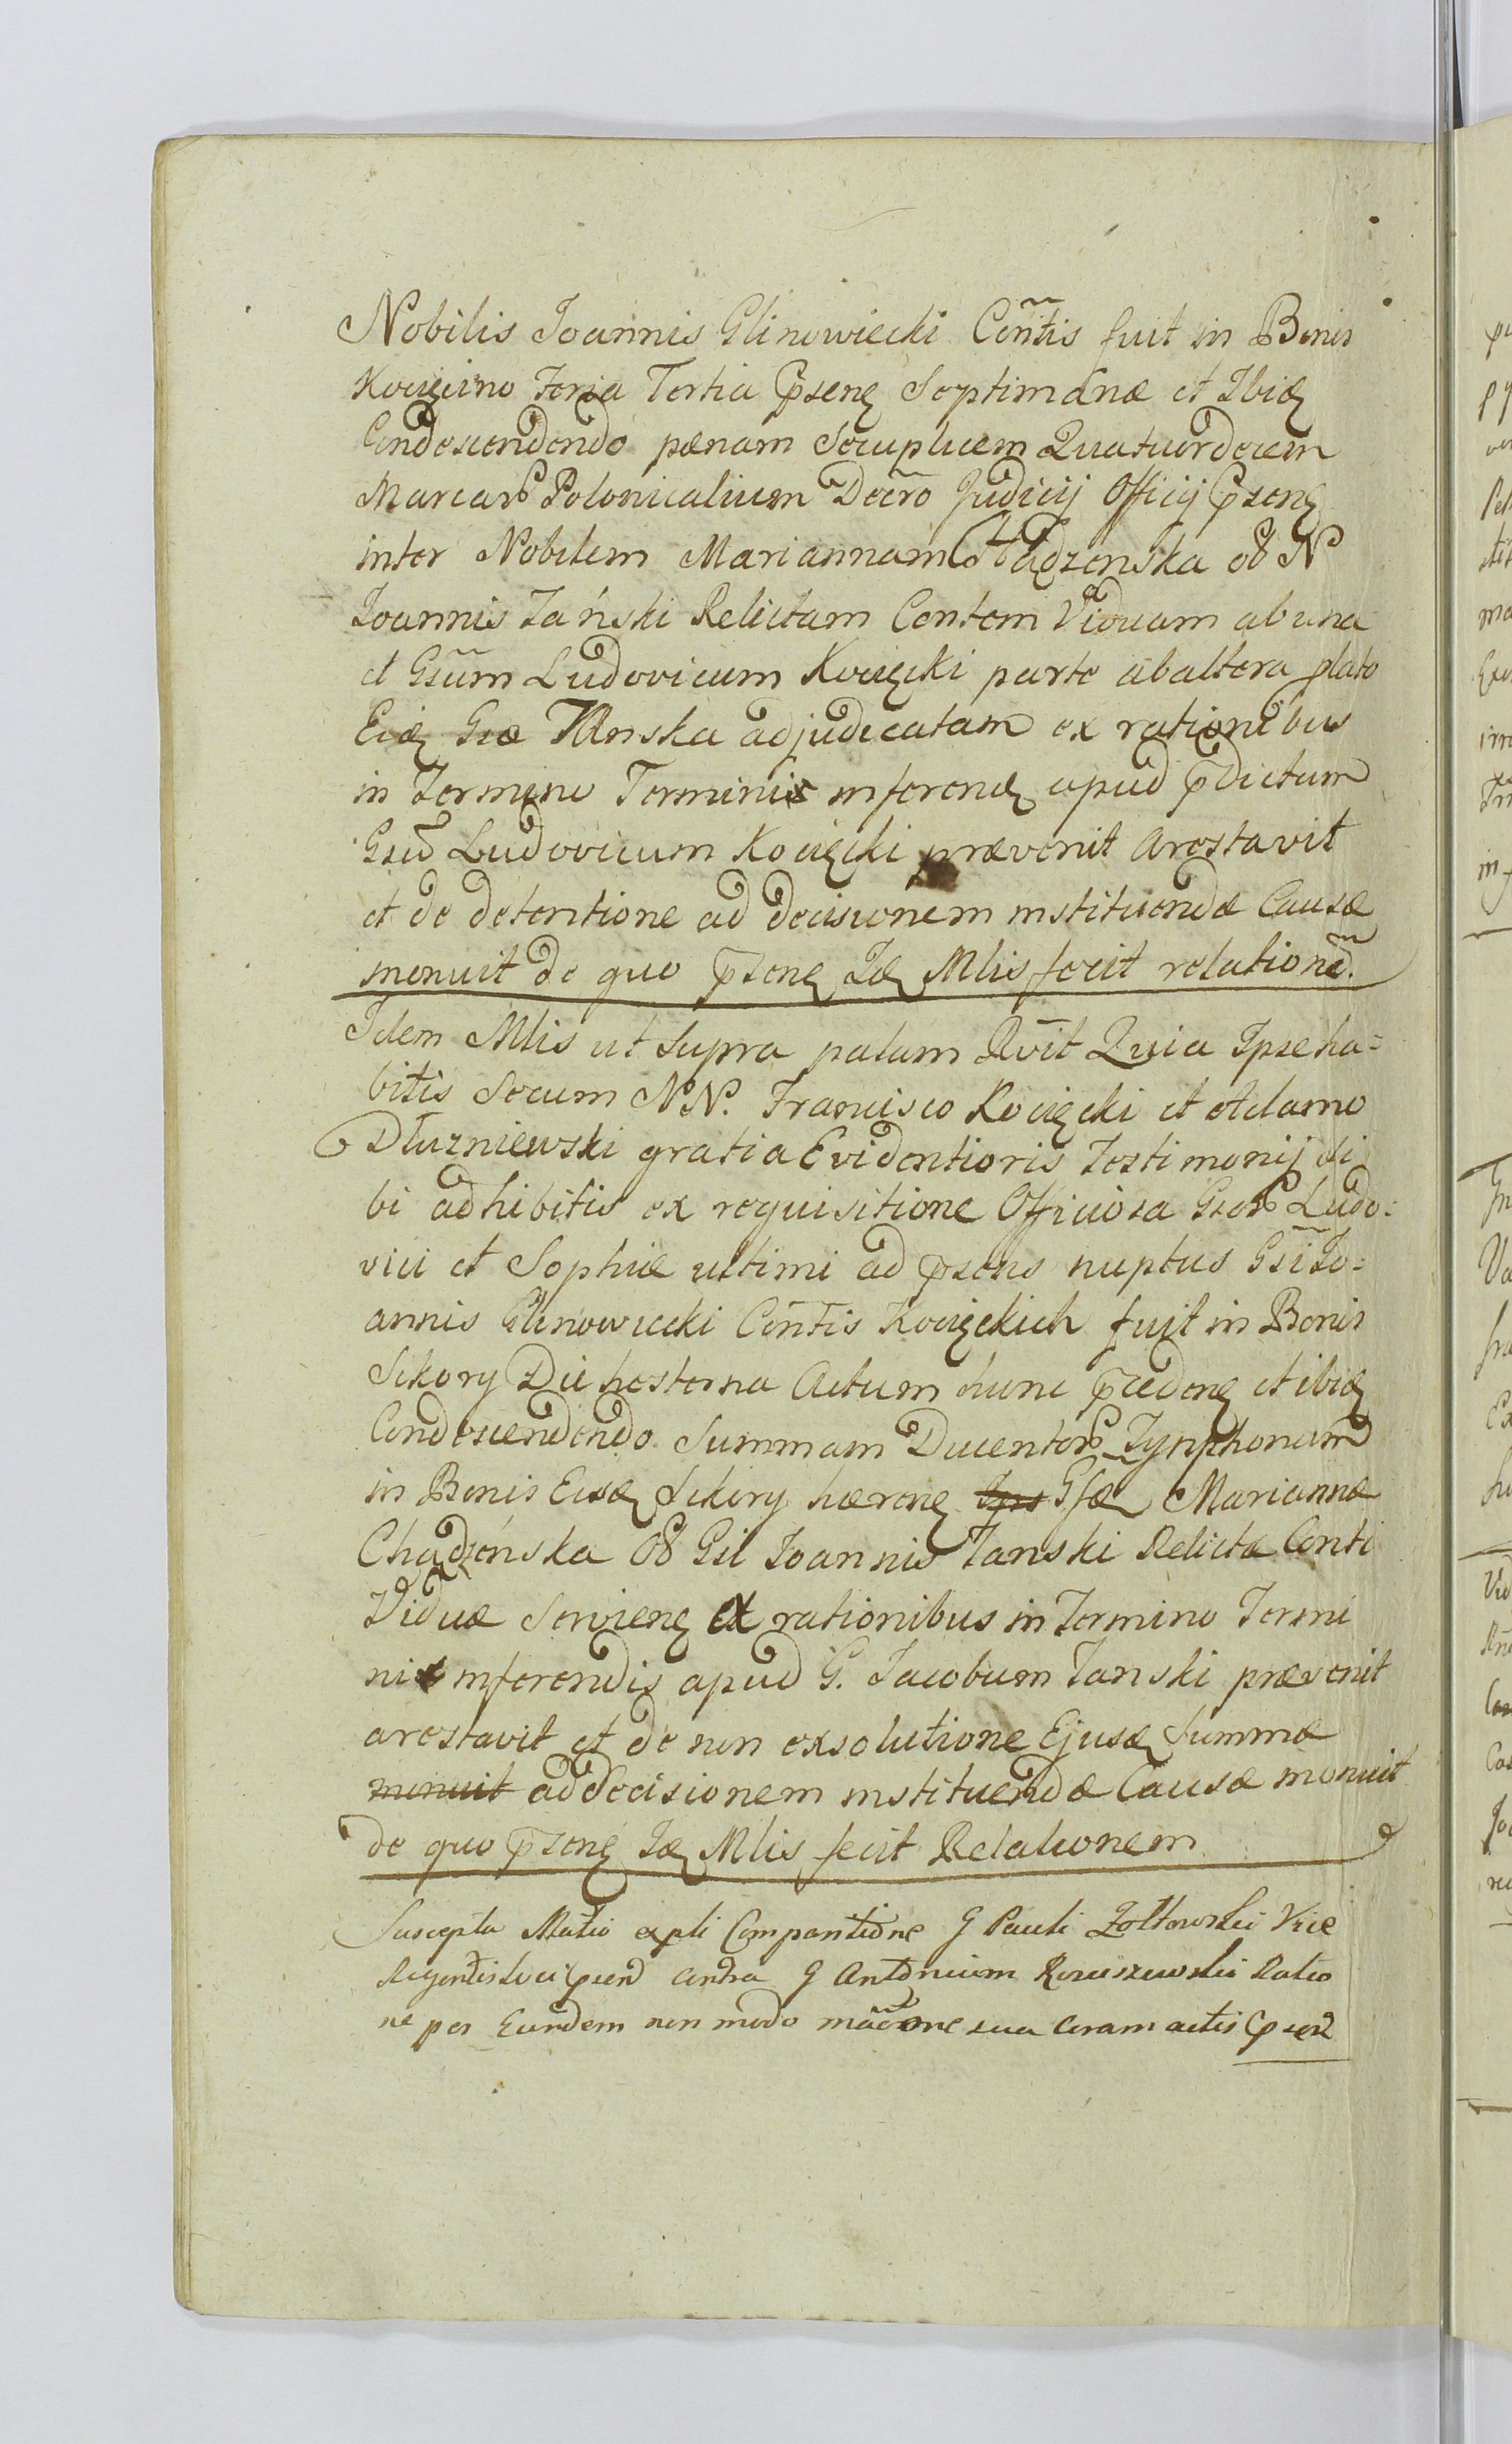 Nobilis Joannis Glinowiecki Cõntis fuit in Bonis
Kocięcino Feria Tertia p̃senę Septimanæ et Ibidę
Condescendendo pænam Secuplicem Quatuordecem
Marcarƺ Polonicalium Decr̃o Judicij Officij p̃senę
inter Nobilem Mariannam Chądzenska oƺ N
Joannis Tański Relictam Contem Viduam ab una
et Gsũm Ludovicum Kocięcki parte ab altera plato
Eidę Gsæ Tanska adjudicatam ex rationibus
in Termino Terminis inferendę apud p̃dictum
Gsũ Ludovicum Kocięcki prævenit arestavit
et de detentione ad decisionem instituendæ Causæ
monuit de quo p̃senę Idę Mlis fecit relationem̃.
Idem Mlis ut Supra palam Rvĩt Quia Ipse ha=
bitis Secum NN. Francisco Kocięcki et Adamo
Dłuzniewski gratia Evidentioris Testimonij Si
bi adhibitis ex requisitione Officiosa Gsorƺ Ludo=
vici et Sophiæ ultimi ad p̃sens nuptus Gsĩ Jo=
annis Glinowiecki Cõntis Kocięckich fuit in Bonis
Sikory Die hesterna Actum hunc p̃cedenę et ibidę
Condescendendo Summam Ducentorƺ Tynphonum
in Bonis Eisdę Sikory hærenę Gsæ Mariannæ
Chądzeńska Oƺ Gsi Joannis Tanski Relictæ Conti
Viduæ Servienę ex rationibus in Termino Termi
nis inferendis apud G. Jacobum Tanski prævenit
arestavit et de non exsolutione Ejusdę Summæ
monuit ad decisionem instituendæ Causæ monuit
de quo p̃senę Idę Mlis fecit Relationem
Suscepta Mãtio expli Compantione G Pauli Zołtowski Vice
Regentis Loci p̃send contra G Antonium Rosciszewski Ratio
ne per Eundem non modo mãõne sua coram actis p̃send